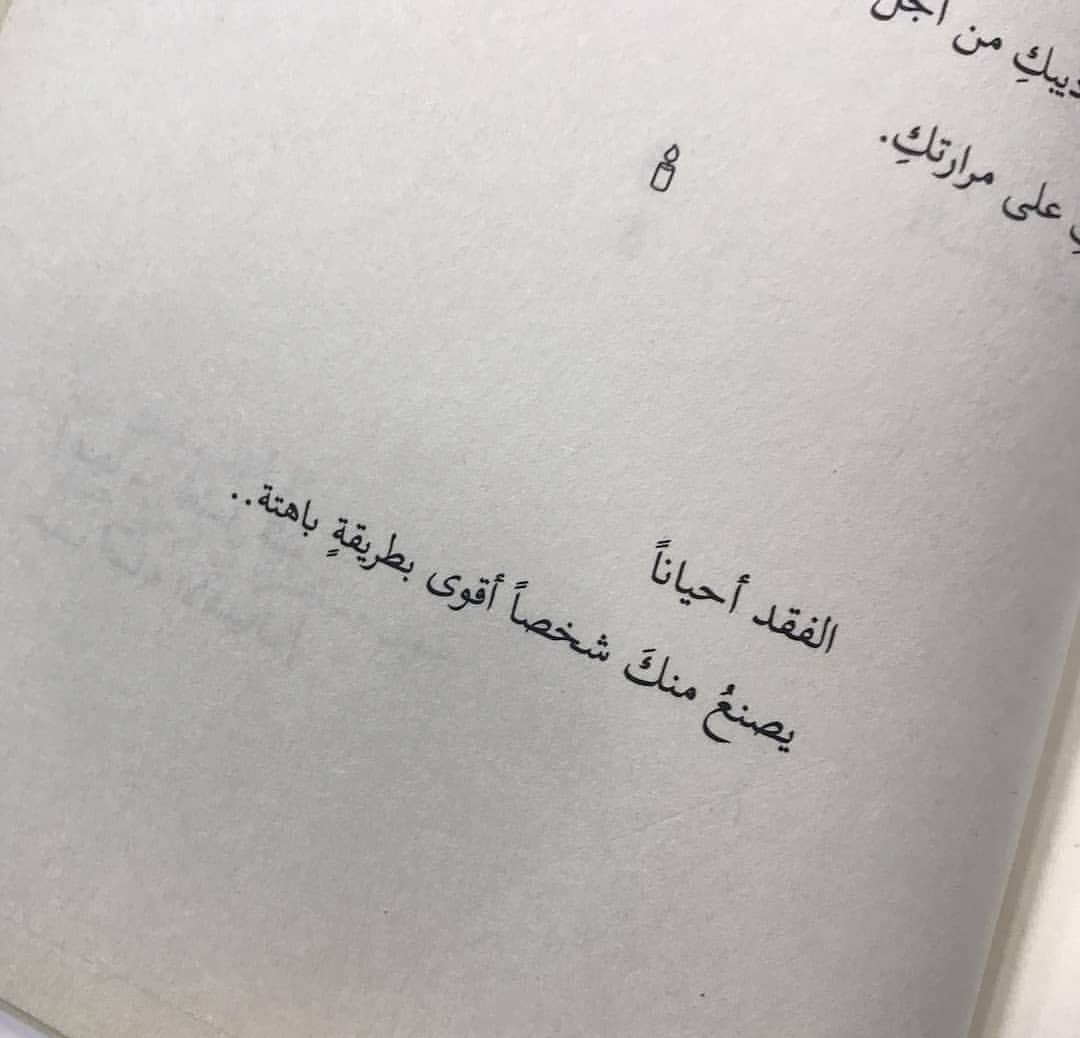 من أجل
على مرارتكِ.
الفقد أحياناً
يصنعُ منكَ شخصاً أقوى بطريقةٍ باهتة..